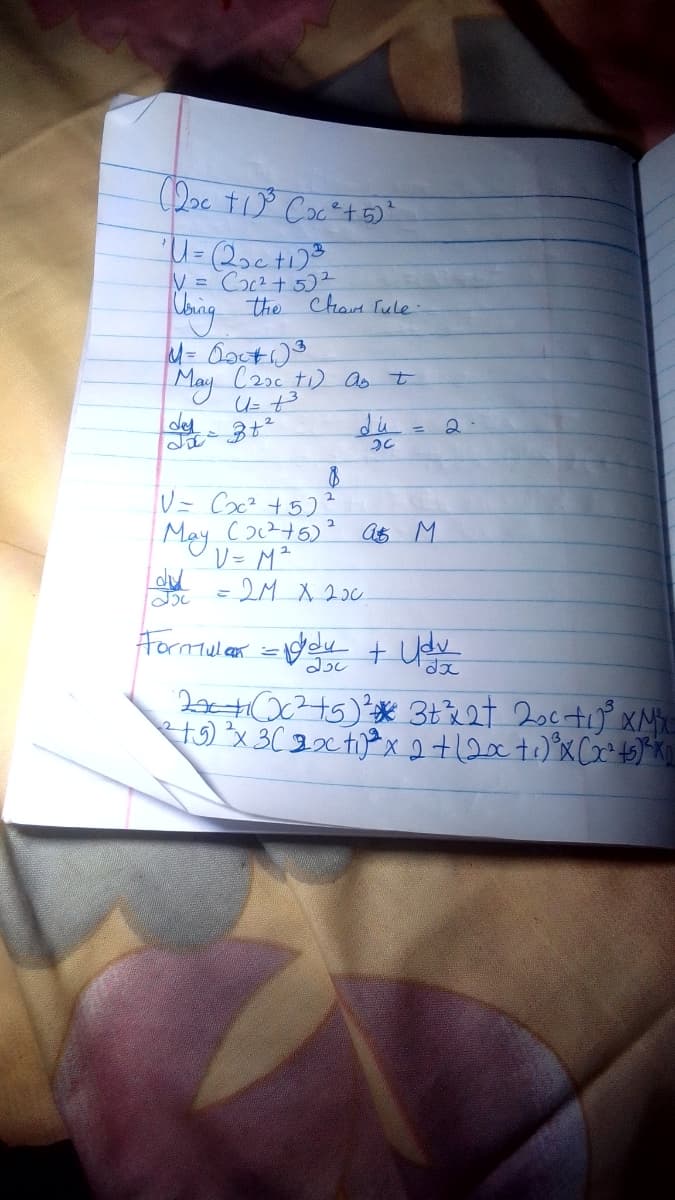 (2x + 1)³ (x² + 5)²
U = (2x + 1)³
V = (x² + 5)²
Using the Chain rule.
U = (2x + 1)³
May (2x + 1) as t
U = t³
dy/dx = 3t² du/x = 2.
V = (x² + 5)²
May (x² + 5)² as M
V = M²
dy/dx = 2M X 2x
Formular = V du/dx + U dv/dx
(x² + 5)² 3t² x 2t 2x + 1)³ x M x
² + 5)² x 3(2x + 1)² x 2 + (2x + 1)³ x (x² + 5)² x